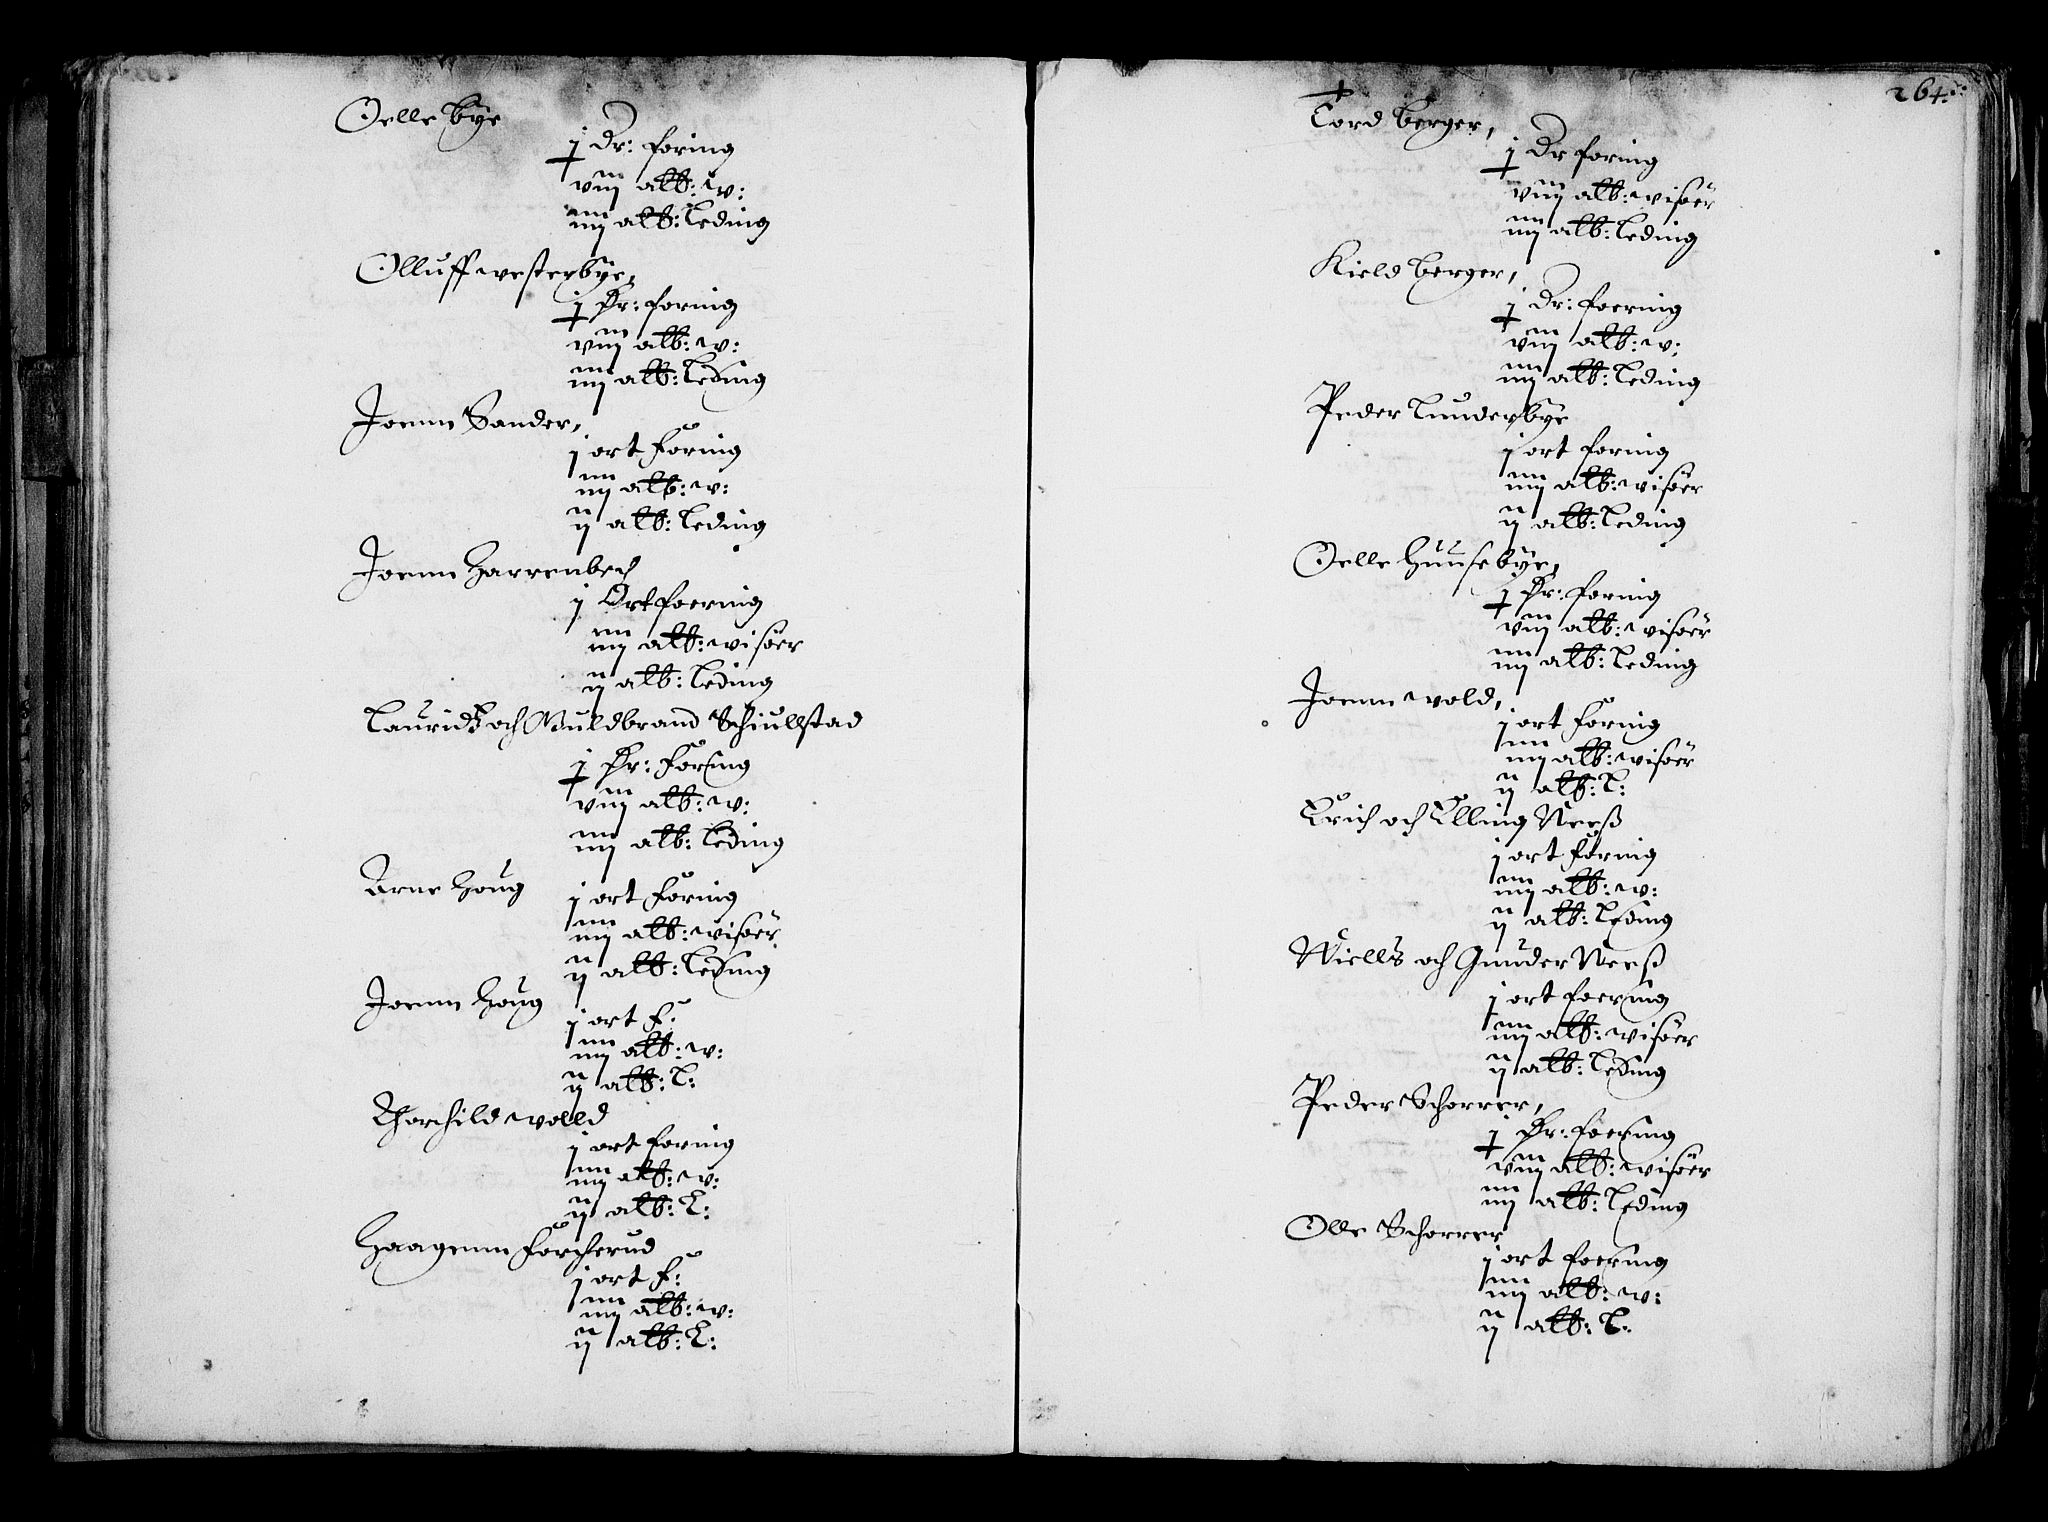 Oelle bye
j Dr: foring
viij alb: w:
iiij alb: Leding
Olluff westerbye,
j Dr: foring
viij alb: w:
iiij alb: Leding
Joenn Sander,
j ort foring
iiij alb: w:
ij alb: Leding
Joenn Harrenbech
j Ort foering
iiij alb: wisöer
ij alb: Leding
Lauridtz och Guldbrand Schiullstad
j Dr: foring
viij alb: w:
iiij alb: Leding
Arne Houg
j ort foring
iiij alb: wisöer
ij alb: Leding
Joenn Houg
j ort f:
iiij alb: w:
ij alb: L:
Thorchild wolld
j ort foring
iiij alb: w:
ij alb: L:
Haagenn forcherud
j ort f:
iiij alb: w:
ij alb: L:
264:
Tord berger,
j Dr foring
viij alb: wisöer
iiij alb: Leding
Kield berger,
j Dr: foering
viij alb: w:
iiij alb: Leding
Peder Lunderbye
j ort foring
iiij alb: wisöer
ij alb: Leding
Oelle Huusebye,
j Dr: foring
viij alb: wisöer
iiij alb: Leding
Joenn wold,
j ort foring
iiij alb: wisöer
ij alb: L:
Erich och Elling Neess
j ort foring
iiij alb: w:
ij alb: Leding
Niells och Gunder Neess
j ort foering
iiij alb: wisöer
ij alb: Leding
Peder Schorrer,
j Dr: foering
viij alb: wisöer
iiij alb: Leding
Olle Schorrer
j ort foering
iiij alb: w:
ij alb: L: